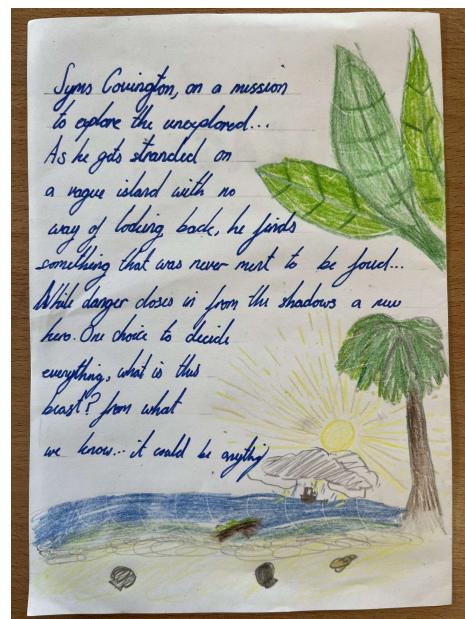 Syms Covington, on a mission
to explore the unexplored...
As he gets stranded on
a vague island with no
way of looking back, he finds
something that was never ment to be foued...
While danger closes in from the shadows a new
hero. One choice to decide
everything, what is this
beast? from what
we know... it could be anything